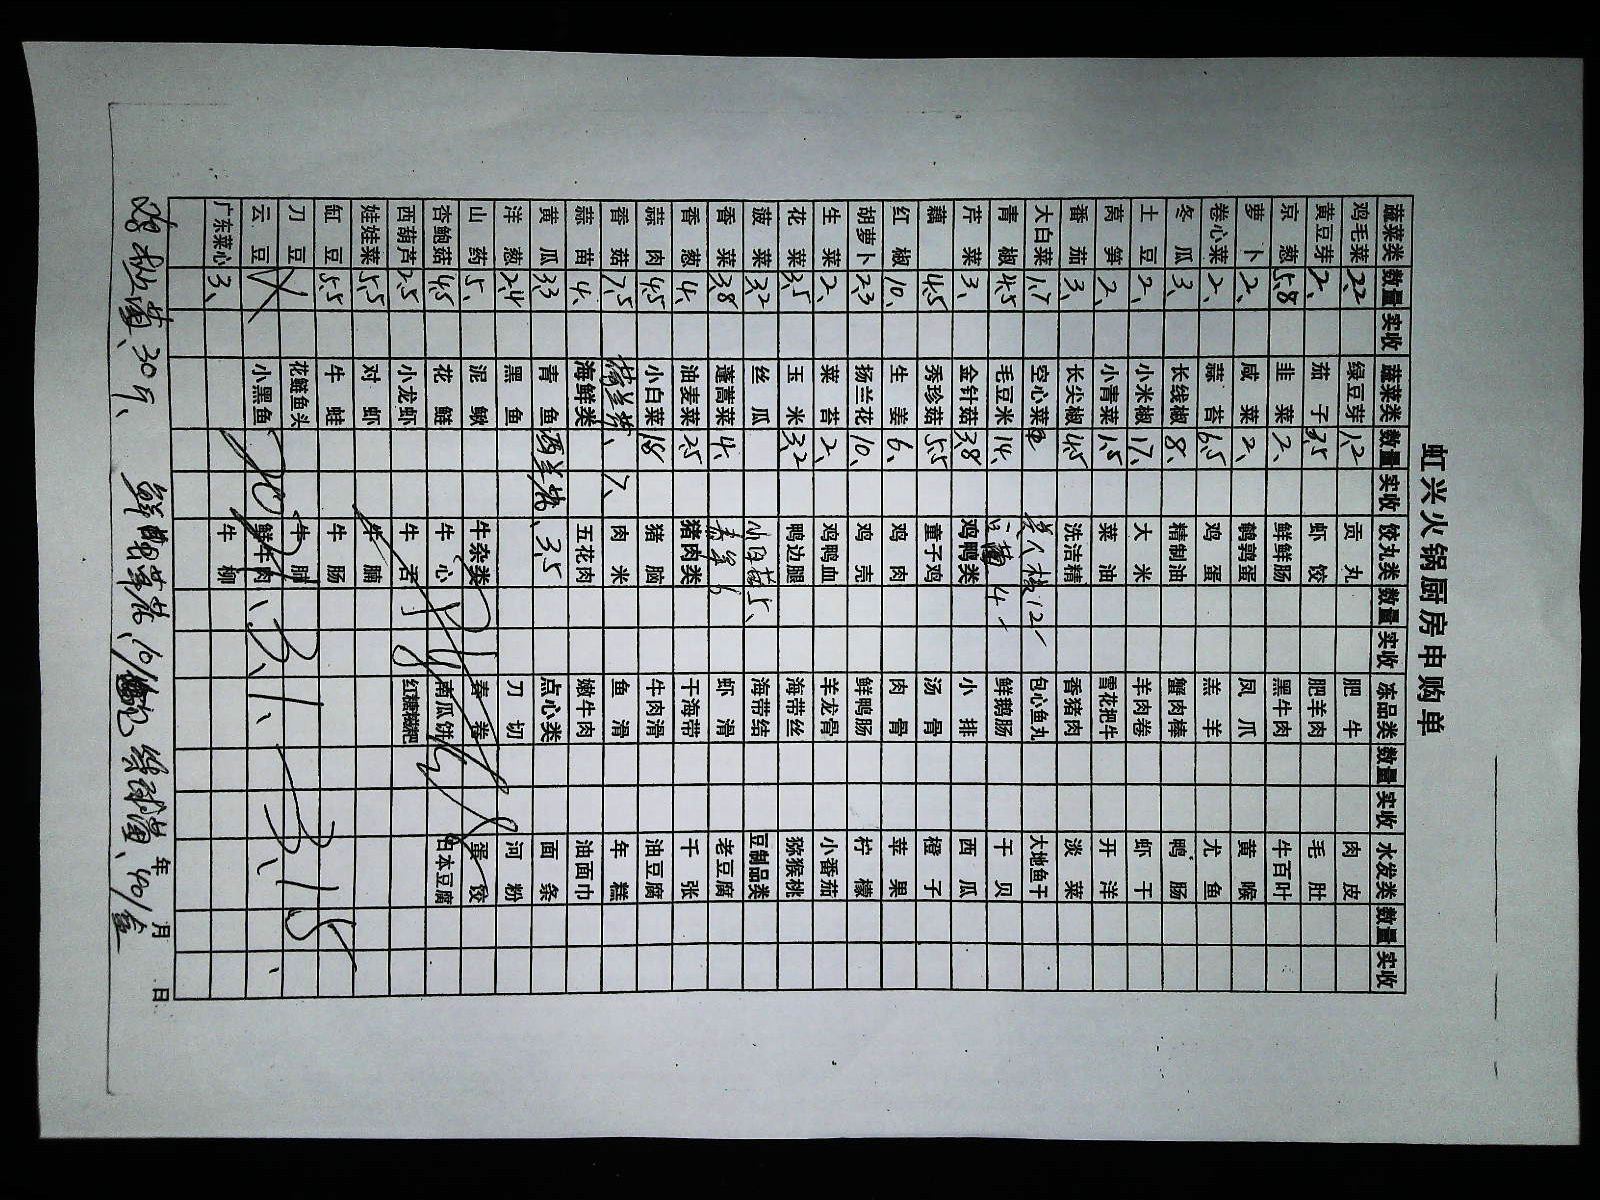 虹兴火锅厨房申购单
蔬菜类 数量 实收 蔬菜类 数量 实收 饺丸类 数量 实收 冻品类 数量 实收 水发类 数量 实收
鸡毛菜 2.2 绿豆芽 1.2 贡丸 肥牛 肉皮
黄豆芽 2、 茄子 3.5 虾饺 肥羊肉 毛肚
京葱 5.8 韭菜 2、 鲜鲜肠 黑牛肉 牛百叶
萝卜 2、 咸菜 2、 鹌鹑蛋 凤爪 黄喉
卷心菜 2、 蒜苔 6.5 鸡蛋 羔羊 尤鱼
冬瓜 3、 长线椒 8、 精制油 蟹肉棒 鸭肠
土豆 2、 小米椒 17、 大米 羊肉卷 虾干
莴笋 2、 小青菜 1.5 菜油 雪花把牛 开洋
番茄 3、 长尖椒 4.5 洗洁精 香猪肉 淡菜
大白菜 1.7 空心菜 美人椒12 包心鱼丸 大地鱼干
青椒 4.5 毛豆米 14、 4 鲜鹅肠 干贝
芹菜 3、 金针菇 3.8 鸡鸭类 小排 西瓜
藕 4.5 秀珍菇 5.5 童子鸡 汤骨 橙子
红椒 10、 生姜 6、 鸡肉 肉骨 苹果
胡萝卜 2.3 扬兰花 10、 鸡壳 鲜鸭肠 柠檬
生菜 2、 菜苔 2、 鸡鸭血 羊龙骨 小番茄
花菜 3.5 玉米 3.2 鸭边腿 海带丝 猕猴桃
菠菜 3.2 丝瓜 5、 海带结 豆制品类
香菜 3.8 蓬蒿菜 4、 6 虾滑 老豆腐
香葱 4、 油麦菜 2.5 猪肉类 干海带 千张
蒜肉 4.5 小白菜 1.8 猪脑 牛肉滑 油豆腐
香菇 7.5 7、 肉米 鱼滑 年糕
蒜苗 4、 海鲜类 五花肉 嫩牛肉 油面巾
黄瓜 3.3 青鱼 西兰花、3.5 点心类 面条
洋葱 2.4 黑鱼 刀切 河粉
山药 5、 泥鳅 牛杂类 春卷 蛋饺
杏鲍菇 4.5 花鲢 牛心 南瓜饼 日本豆腐
西葫芦 2.5 小龙虾 牛舌 红糖糍粑
娃娃菜 5.5 对虾 牛腩
缸豆 5.5 牛蛙 牛肠
刀豆 花鲢鱼头 牛腩
云豆 小黑鱼 鲜牛肉
广东菜心 3、 牛柳
年 月 日